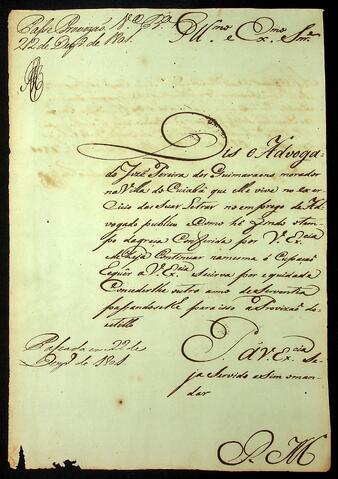 Passe Provizão
22 de Dezbr.º de 1801
Ill.mo e Ex.mo Snr.
Dis o Advoga-
do Jozé Pereira dos Guimaraens morador
na Villa do Cuiabá que elle vive no exer
cicio das suas Letras no emprego de Ad
vogado publico e como há findo o tem-
po da graça Conferida por V. Ex.cia
e deseja Continuar na mesma
V. Ex.cia por equidade
Concederlhe outro anno de Serventia
passandoselhe para isso a Provizão do
estillo
P. a V. Ex.cia Se
ja Servido asim o man
dar
Passada em 22 de
Dezbr.º de 1801
E. R. M.